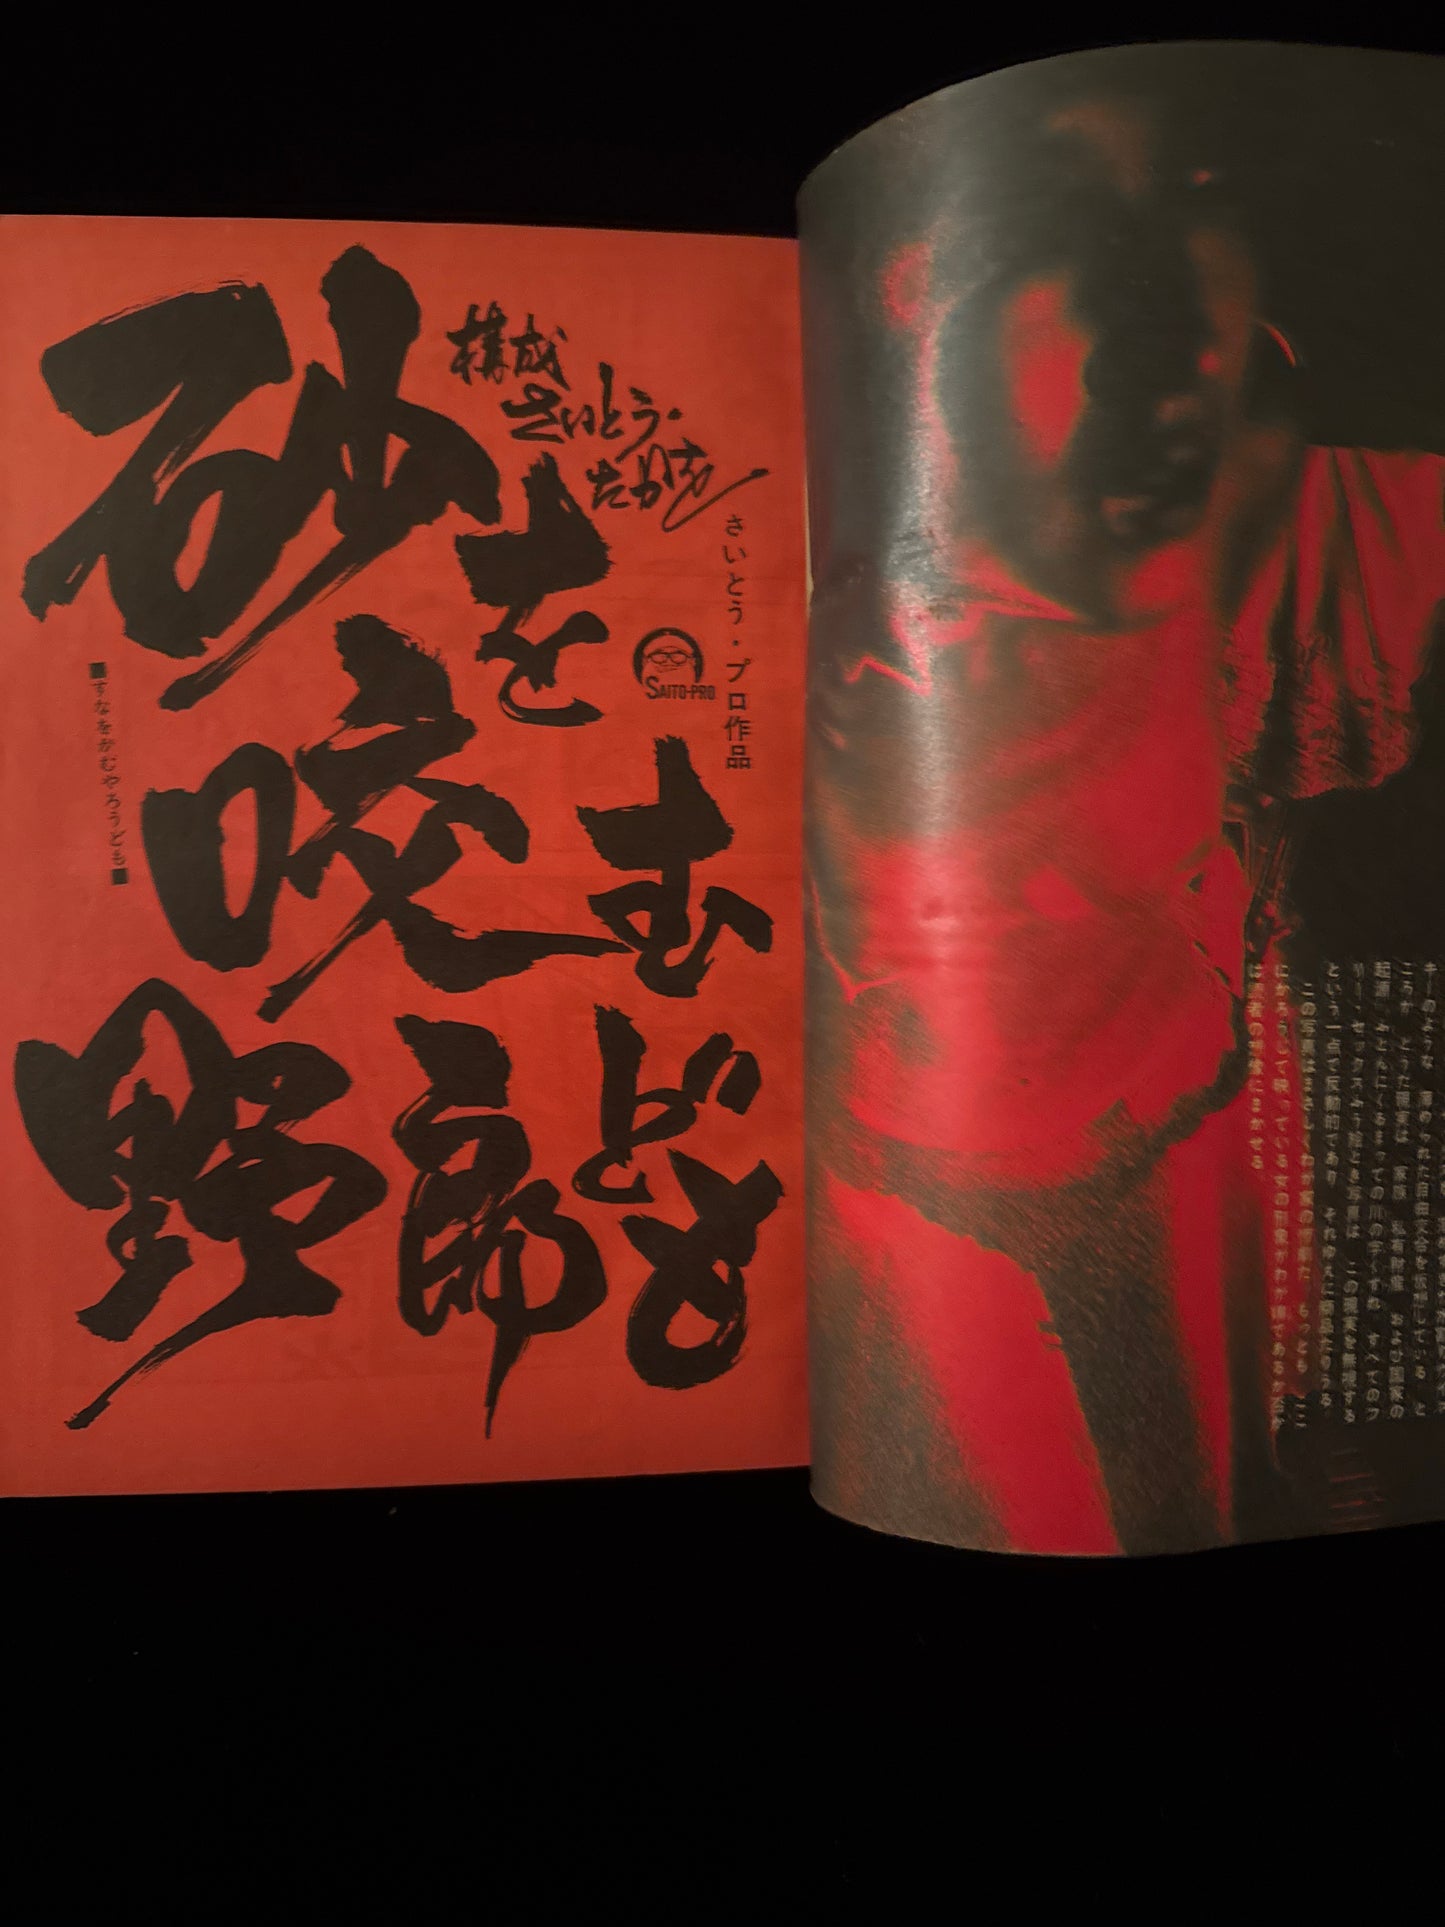 キーのような 薄められた自由交合を仮想している と
ころが 現実は 家族 私有財産 および国家の
起源 ふとんにくるまっての川の字くずれ すべてのフ
リー・セックスふう絵とき写真は この現実を無視する
という一点で反動的であり それゆえに商品たりうる
この写真はまさしくわが家の惨劇だ もっとも ここ
にかろうじて映っている女の形象がわが であるか否か
は読者の想像にまかせる
構成
さいとう・
たかを
さいとう・プロ作品
SAITO-PRO
砂を
咬む
野郎ども
■すなをかむやろうども■